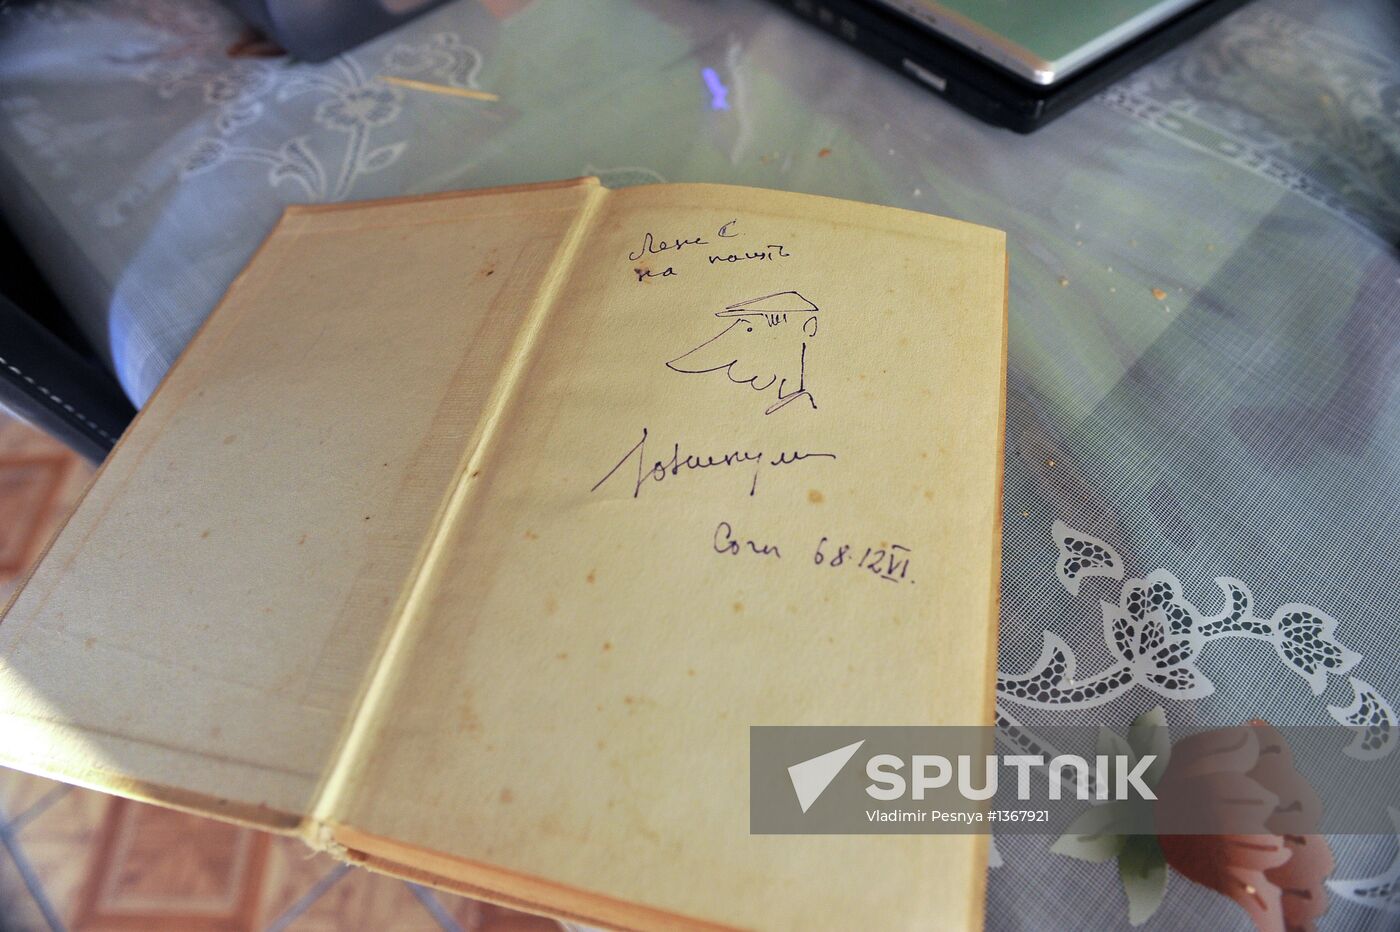 Лене С.
на память
Юз
Сочи 68.12 VI.
SPUTNIK
Vladimir Pesnya #1367921